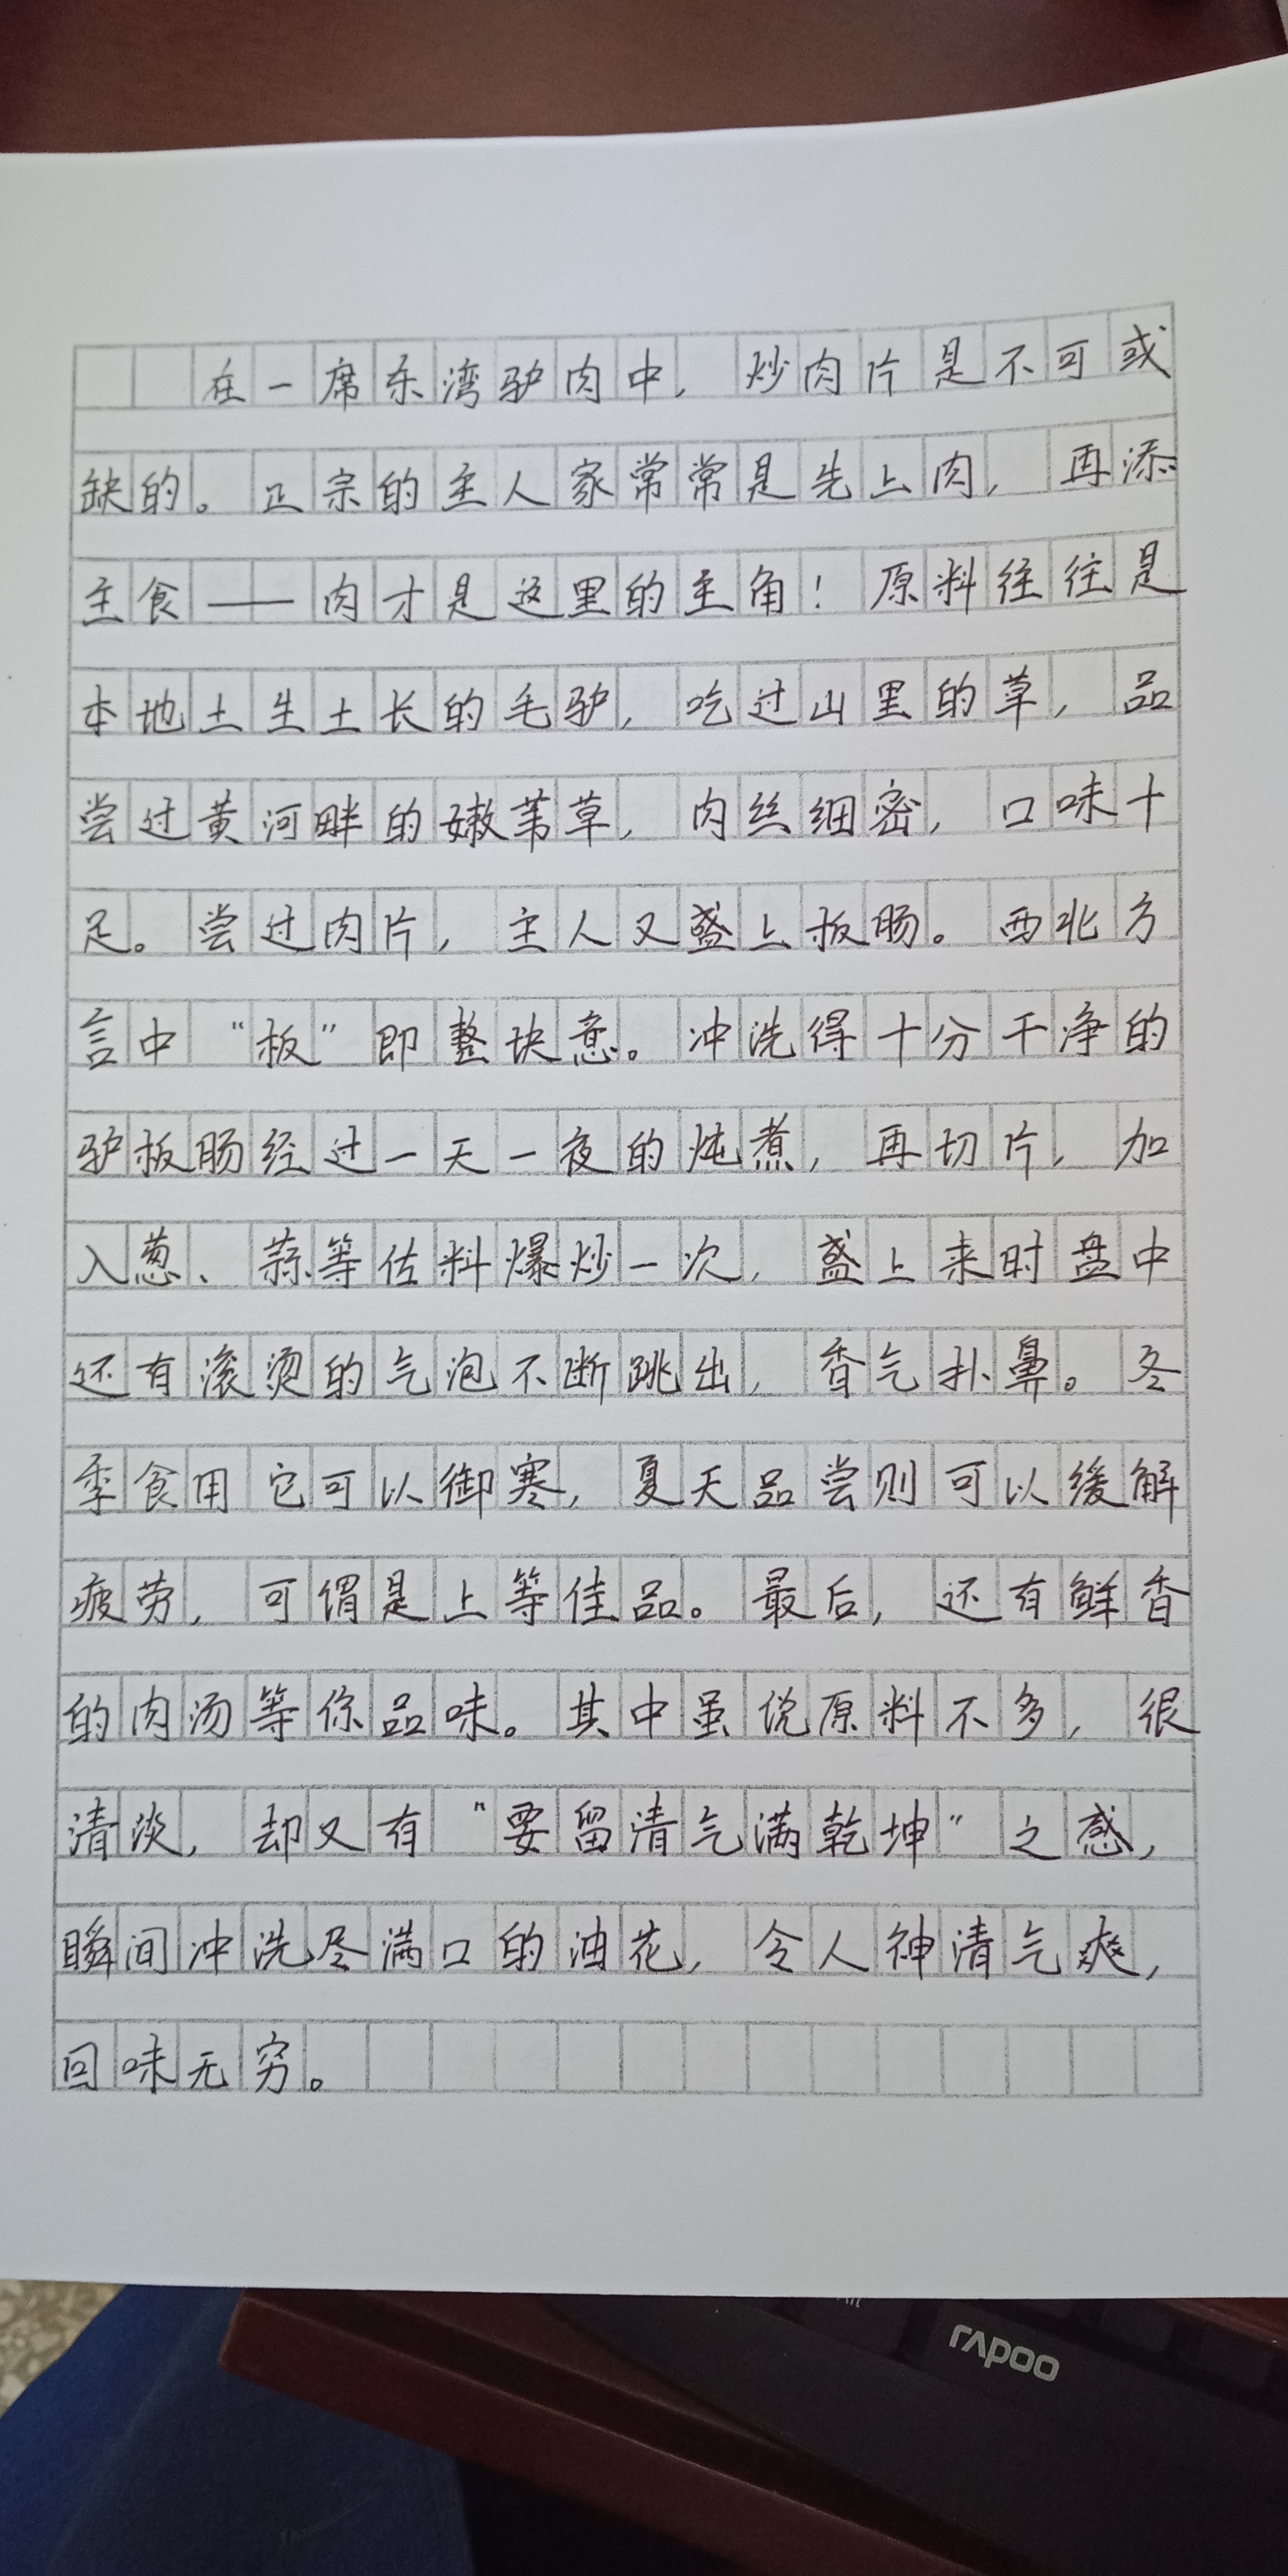 在一席东湾驴肉中，炒肉片是不可或
缺的。正宗的主人家常常是先上肉，再添
主食——肉才是这里的主角！原料往往是
本地土生土长的毛驴，吃过山里的草，品
尝过黄河畔的嫩苇草，肉丝细密，口味十
足。尝过肉片，主人又盛上板肠。西北方
言中“板”即整块意。冲洗得十分干净的
驴板肠经过一天一夜的炖煮，再切片，加
入葱、蒜等佐料爆炒一次，盛上来时盘中
还有滚烫的气泡不断跳出，香气扑鼻。冬
季食用它可以御寒，夏天品尝则可以缓解
疲劳，可谓是上等佳品。最后，还有鲜香
的肉汤等你品味。其中虽说原料不多，很
清淡，却又有“要留清气满乾坤”之感，
瞬间冲洗尽满口的油花，令人神清气爽，
回味无穷。
rapoo